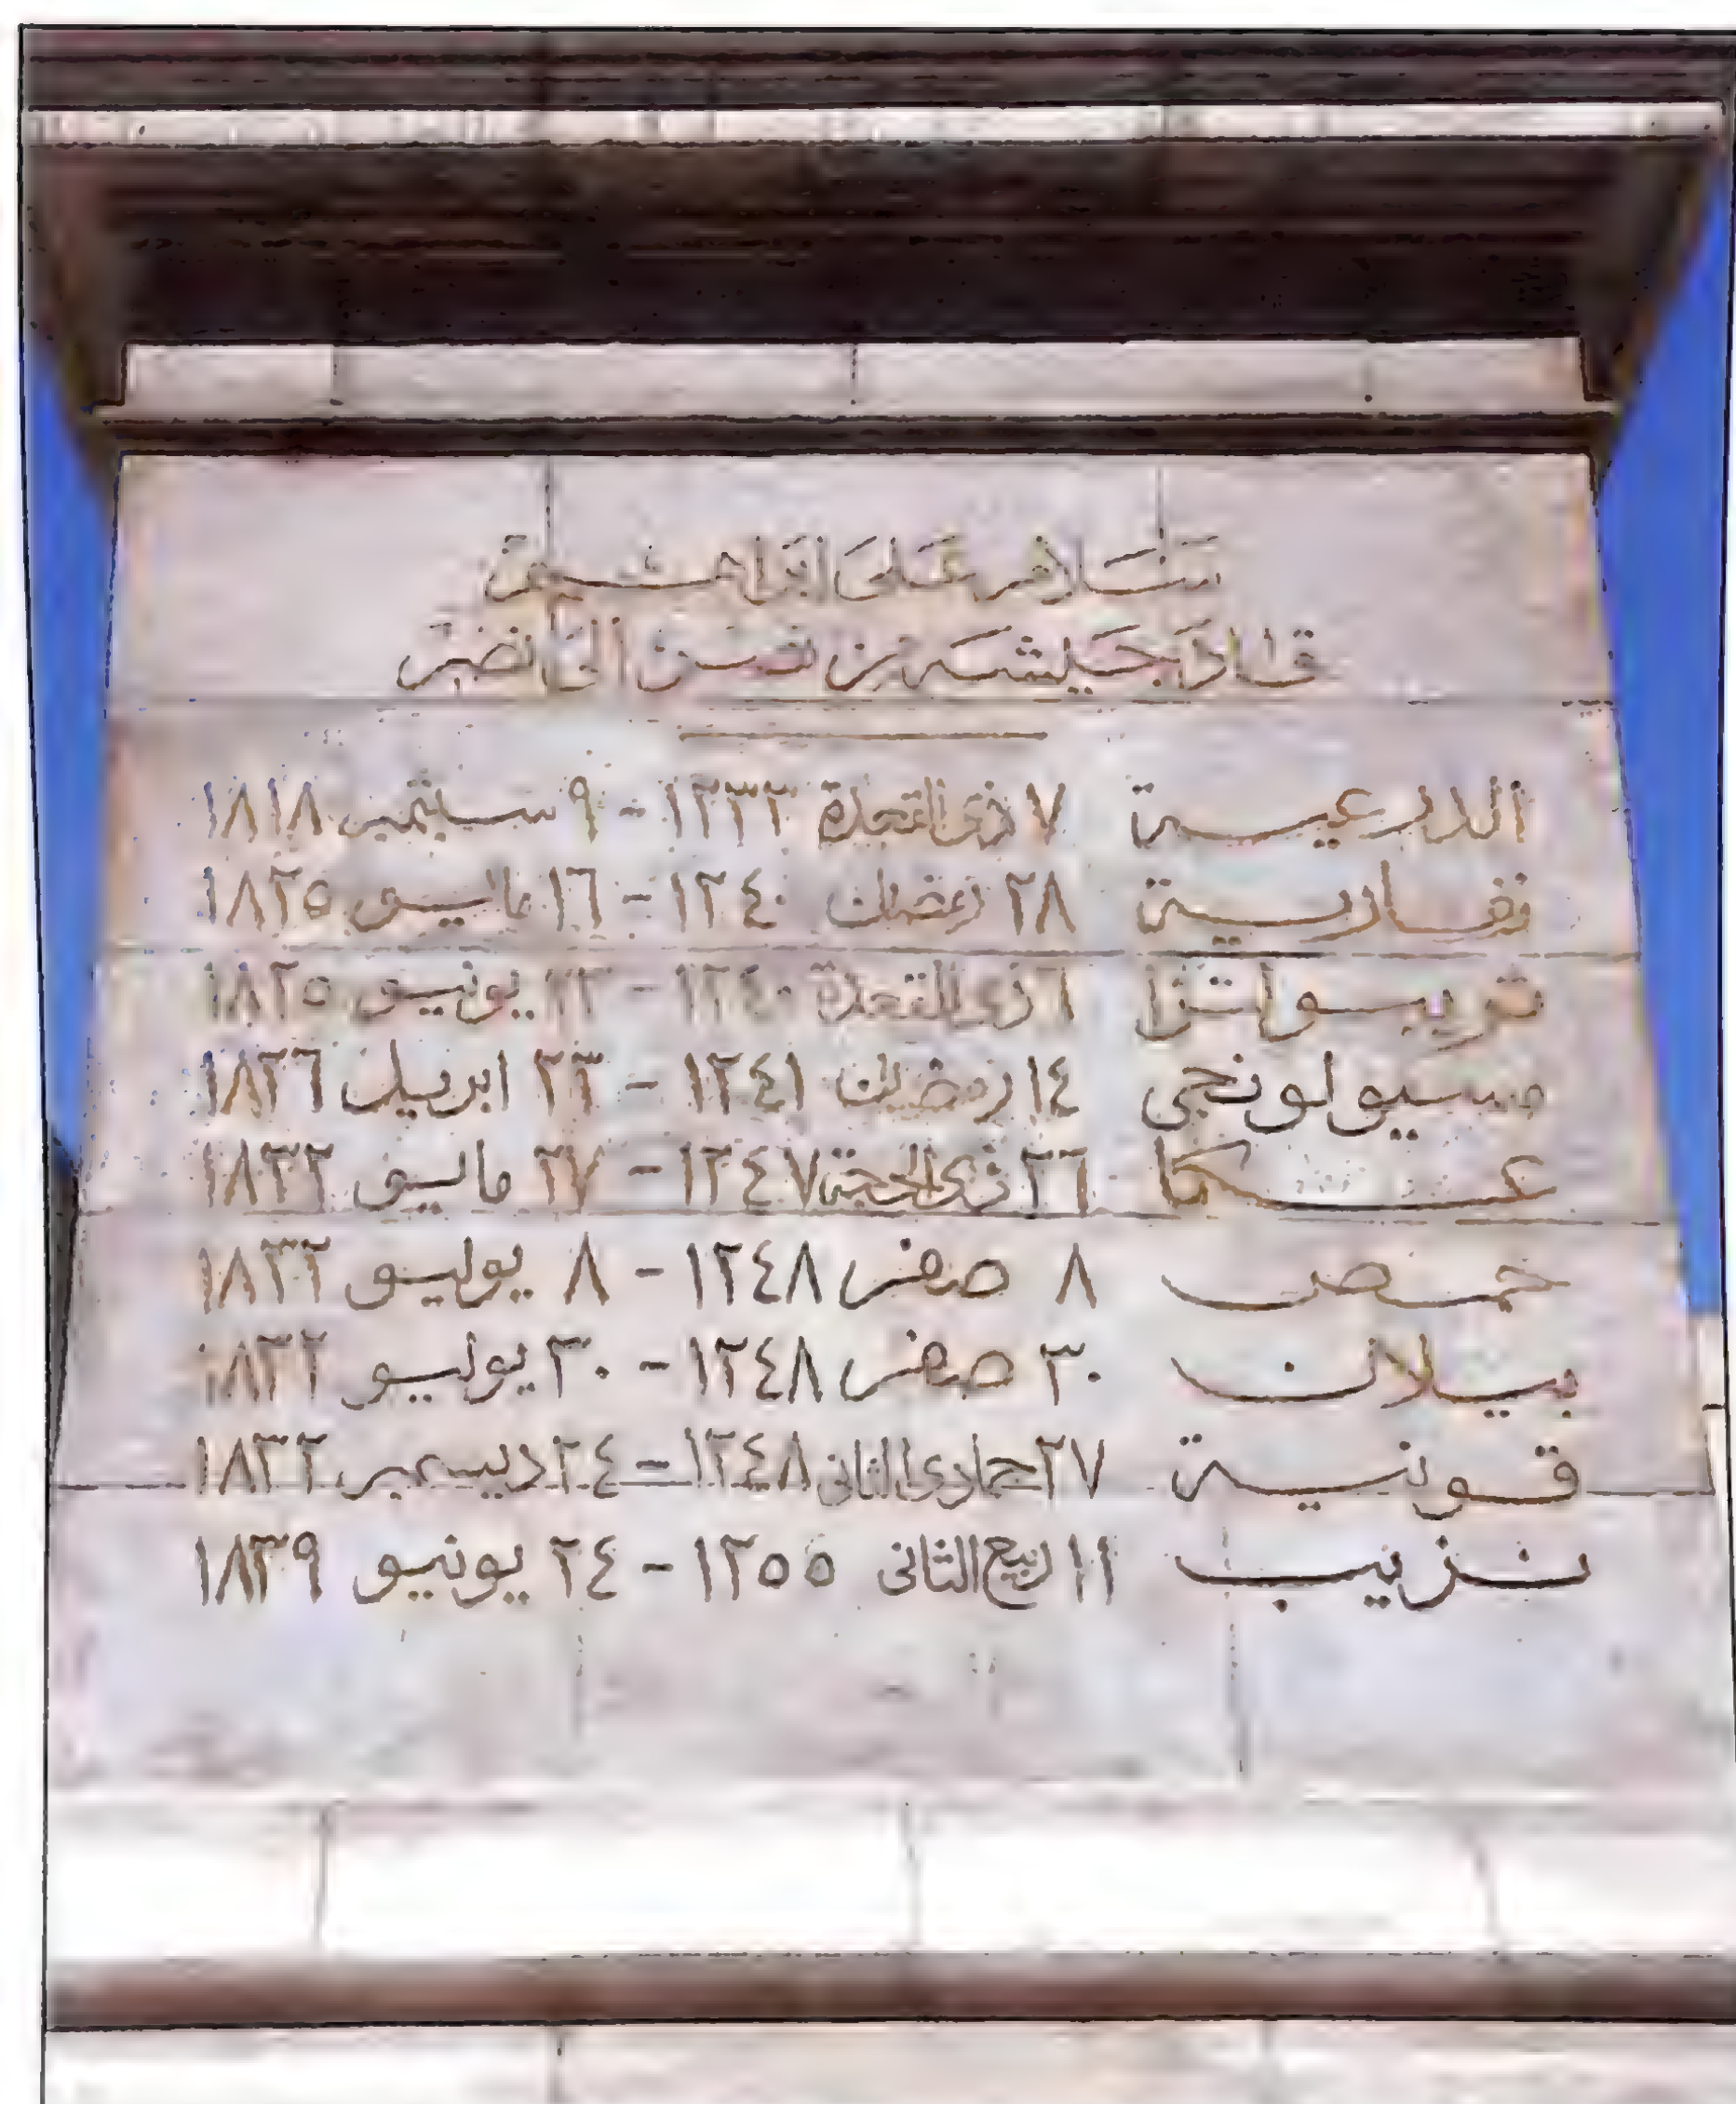 سَلام عَلى ابراهيم
قاد جيشه من نصر الى نصر
الدرعيـة ٧ ذى القعدة ١٢٣٣ - ٩ سبتمبر ١٨١٨
نفاريـة ٢٨ رمضان ١٢٤٠ - ١٦ مايـو ١٨٢٥
تريبـواتزا ٦ ذى القعدة ١٢٤٠ - ٢٢ يونيـو ١٨٢٥
ميسيولونجى ١٤ رمضان ١٢٤١ - ٢٣ ابريل ١٨٢٦
عـكا ٢٦ ذى الحجة ١٢٤٧ - ٢٧ مايـو ١٨٣٢
حمـص ٨ صفر ١٢٤٨ - ٨ يوليـو ١٨٣٢
بيـلان ٣٠ صفر ١٢٤٨ - ٣٠ يوليـو ١٨٣٢
قـونيـة ٢٧ جمادى الثانى ١٢٤٨ - ٢٤ ديسمبر ١٨٣٢
نـزيب ١١ ربيع الثانى ١٢٥٥ - ٢٤ يونيو ١٨٣٩